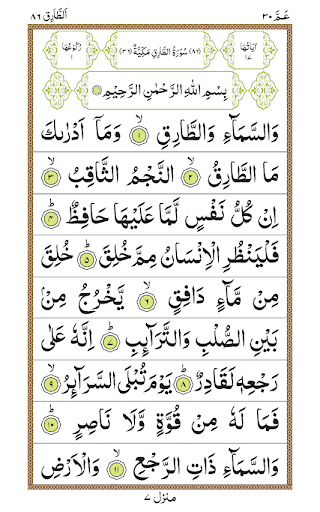 عَمَّ ٣٠ اَلطَّارِق ٨٦
اٰيَاتُهَا ١٧ (٨٦) سُوْرَةُ الطَّارِقِ مَكِّيَّةٌ (٣٦) رُكُوْعُهَا ١
بِسْمِ اللّٰهِ الرَّحْمٰنِ الرَّحِيْمِ
وَالسَّمَآءِ وَالطَّارِقِ ۙ‏﴿۱﴾ وَمَاۤ اَدْرٰىكَ
مَا الطَّارِقُ ۙ‏﴿۲﴾ النَّجْمُ الثَّاقِبُ ۙ‏﴿۳﴾
اِنْ كُلُّ نَفْسٍ لَّمَّا عَلَيْهَا حَافِظٌ ؕ‏﴿۴﴾
فَلْيَنْظُرِ الْاِنْسَانُ مِمَّ خُلِقَ ؕ‏﴿۵﴾ خُلِقَ
مِنْ مَّآءٍ دَافِقٍ ۙ‏﴿۶﴾ يَّخْرُجُ مِنْۢ
بَيْنِ الصُّلْبِ وَالتَّرَآئِبِ ؕ‏﴿۷﴾ اِنَّهٗ عَلٰى
رَجْعِهٖ لَقَادِرٌ ؕ‏﴿۸﴾ يَوْمَ تُبْلَى السَّرَآئِرُ ۙ‏﴿۹﴾
فَمَا لَهٗ مِنْ قُوَّةٍ وَّلَا نَاصِرٍ ؕ‏﴿۱۰﴾
وَالسَّمَآءِ ذَاتِ الرَّجْعِ ۙ‏﴿۱۱﴾ وَالْاَرْضِ
منزل ٧